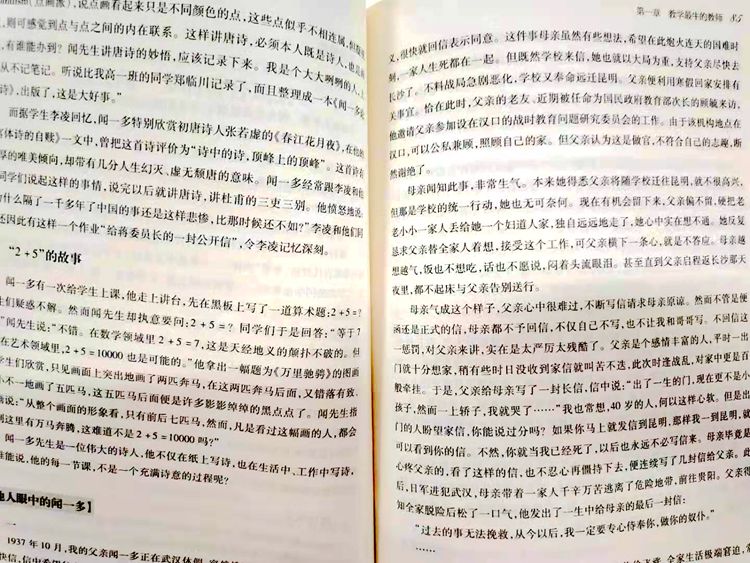 nism(点画派),说点画看起来只是不同颜色的点,这些点似乎不相连属,但
,则可感觉到点与点之间的内在联系。这样讲唐诗,必须本人既是诗人,也
,有谁能办到?闻先生讲唐诗的妙悟,应该记录下来。我是个大大咧咧的人,上
从不记笔记。听说比我高一班的同学郑临川记录了,而且整理成一本《闻一多
诗》,出版了,这是大好事。”
而据学生李凌回忆,闻一多特别欣赏初唐诗人张若虚的《春江花月夜》,在他
宫体诗的自赎》一文中,曾把这首诗评价为“诗中的诗,顶峰上的顶峰”。这首诗有
厚的唯美倾向,却带有几分人生幻灭、虚无颓唐的意味。闻一多经常跟李凌和他
同学们说起这样的事情,说完以后就讲唐诗,讲杜甫的三吏三别。他愤怒地说:
什么隔了一千多年了中国的事还是这样悲惨,比那时候还不如?”李凌和他们同
还因此有这样一个作业“给蒋委员长的一封公开信”,令李凌记忆深刻。
“2+5”的故事
闻一多有一次给学生上课,他走上讲台,先在黑板上写了一道算术题:2+5=?
生们疑惑不解。然而闻先生却执意要问:2+5=?同学们于是回答:“等于7
”闻先生说:“不错。在数学领域里2+5=7,这是天经地义的颠扑不破的。但
在艺术领域里,2+5=10000也是可能的。”他拿出一幅题为《万里驰骋》的图画
学生们欣赏,只见画面上突出地画了两匹奔马,在这两匹奔马后面,又错落有致、
不一地画了五匹马,这五匹马后面便是许多影影绰绰的黑点点了。闻先生指
画说:“从整个画面的形象看,只有前后七匹马,然而,凡是看过这幅画的人,都会
到这里有万马奔腾,这难道不是2+5=10000吗?”
闻一多先生是一位伟大的诗人,他不仅在纸上写诗,也在生活中、工作中写诗,
谁能说,他的每一节课,不是一个充满诗意的过程呢?
他人眼中的闻一多】
一
1937年10月,我的父亲闻一多正在武汉休假
第一章 教学最牛的教师 35
义,很快就回信表示同意。这件事母亲虽然有些想法,希望在此炮火连天的国难时
刻,一家人生死都在一起。但既然学校来信,她也就以大局为重,支持父亲尽快去
长沙了。不料战局急剧恶化,学校又奉命远迁昆明。父亲便利用寒假回家安排有
关事宜。恰在此时,父亲的老友、近期被任命为国民政府教育部次长的顾毓琇访汉,
他邀请父亲参加设在汉口的战时教育问题研究委员会的工作。由于该机构地点在
汉口,可以公私兼顾,照顾自己的家。但父亲认为这是做官,不符合自己的志趣,断
然谢绝了。
母亲闻知此事,非常生气。本来她得悉父亲将随学校迁往昆明,就不很高兴,
但那是学校的统一行动,她也无可奈何。现在有机会留下来,父亲偏不留,硬把老
老小小一家人丢给她一个妇道人家,独自远远地走了,她心中实在想不通。她反复
恳求父亲替全家人着想,接受这个工作,可父亲横下一条心,就是不答应。母亲越
想越气,饭也不想吃,话也不愿说,闷着头流眼泪。甚至直到父亲启程返长沙那天
夜里,都不起床与父亲告别送行。
母亲气成了这个样子,父亲心中很难过,不断写信请求母亲原谅。然而不管是便
函还是正式的信,母亲都不予回信,不仅自己不写,也不让我和哥哥写。不回信这
一惩罚,对父亲来讲,实在是太严厉太残酷了。父亲是个感情丰富的人,平时一出
门就十分想家,稍有些时日没收到家信就叫苦不迭,此次时逢战乱,对家中更是百
般牵挂。于是,父亲给母亲写了一封长信,信中说:“出了一生的门,现在更不是小
孩子,然而一上轿子,我就哭了……”“我也常想,40岁的人,何以这样心软。但是出
门的人盼望家信,你能说过分吗?如果你马上就发信到昆明,那样我一到昆明,就
可以看到你的信。不然,你就当我已经死了,以后也永远不必写信来。母亲毕竟是
心疼父亲的,看了这样的信,也不忍心再僵持下去,便连续写了几封信给父亲。此
后,日军进犯武汉,母亲带着一家人千辛万苦逃离了危险地带,前往贵阳。父亲得
知全家脱险后松了一口气,他发出了一生中给母亲的最后一封信:
“过去的事无法挽救,从今以后,我一定要专心侍奉你,做你的奴仆。”
……
全家生活极端窘迫,常